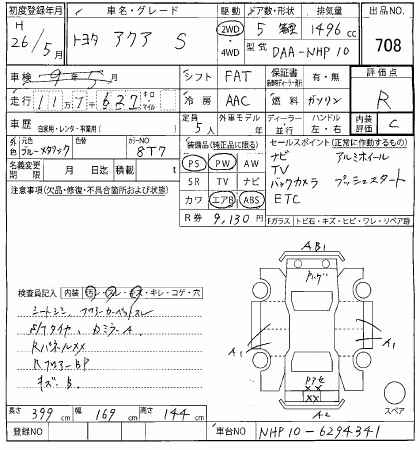 初度登録年月 車名・グレード 駆動 ドア数・形状 排気量 出品NO.
H 26/5月 トヨタ アクア S 2WD 4WD 5 1496cc 708
型式 DAA-NHP10
車検 9年5月 シフト FAT 保証書 有・無 評価点
走行 117,622 キロ マイル 冷房 AAC 燃料 ガソリン R
車歴 自家用・レンタ・事業用( ) 定員 5人 外車モデル 年 ディーラー・並行 ハンドル 左・右 内装評価 C
外色 元色 ブルーメタリック 色替 カラーNO 8T7 装備品(純正品に限る) セールスポイント(正常に作動するもの)
名義変更期限 月 日迄 積載量 t PS PW AW ナビ アルミホイール
TV
注意事項(欠品・修復・不具合箇所および状態) SR TV ナビ バックカメラ プッシュスタート
カワ エアB ABS ETC
R券 9,130円 Fガラス トビ石・キズ・ヒビ・ワレ・リペア跡
AB1
検査員記入 内装 キレ・コゲ・穴
シートシミ フロアーカーペットスレ
8/Tタイヤ、DミラーA
RパネルXX
RフロアーBP
キズ、B
A1
A1
XX
A2
スペア
長さ 399cm 幅 169cm 高さ 144cm
登録NO 車台NO NHP10-6294341